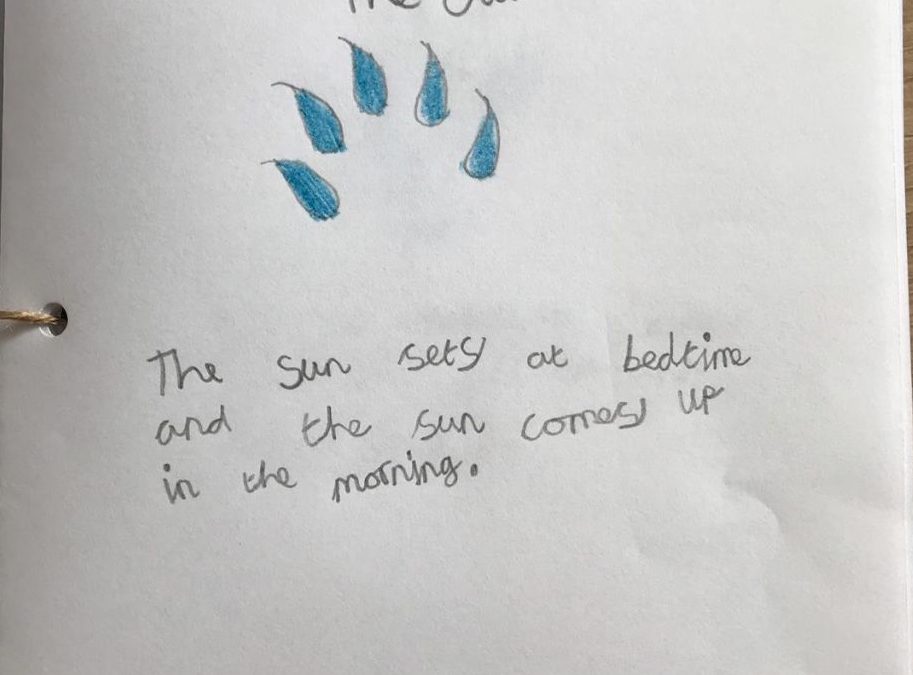 The
The sun sets at bedtime
and the sun comes up
in the morning.